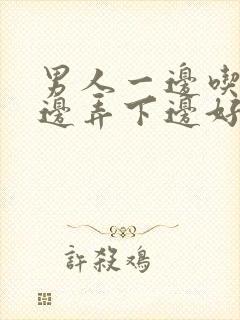 男人一邊喫
邊弄下邊好
許殺鴻